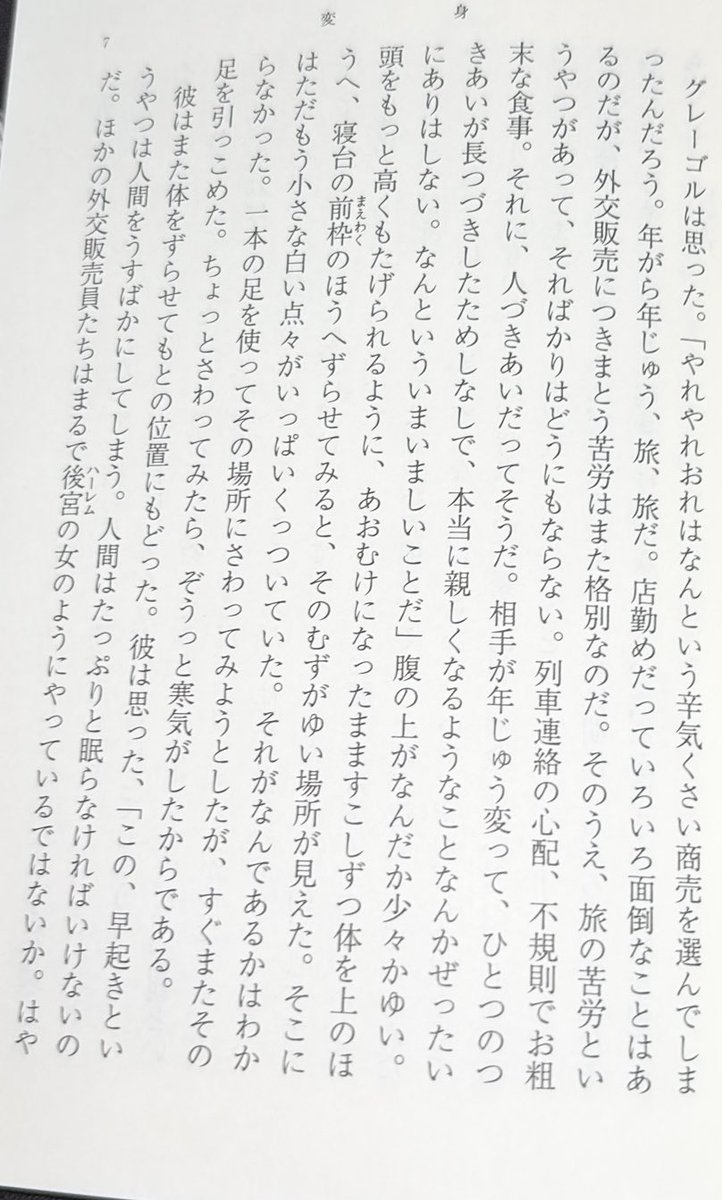 変身
7
グレーゴルは思った。「やれやれおれはなんという辛気くさい商売を選んでしま
ったんだろう。年がら年じゅう、旅、旅だ。店勤めだっていろいろ面倒なことはあ
るのだが、外交販売につきまとう苦労はまた格別なのだ。そのうえ、旅の苦労とい
うやつがあって、そればかりはどうにもならない。列車連絡の心配、不規則でお粗
末な食事。それに、人づきあいだってそうだ。相手が年じゅう変って、ひとつのつ
きあいが長つづきしたためしなしで、本当に親しくなるようなことなんかぜったい
にありはしない。なんといういまいましいことだ」腹の上がなんだか少々かゆい。
頭をもっと高くもたげられるように、あおむけになったまますこしずつ体を上のほ
うへ、寝台の前枠まえわくのほうへずらせてみると、そのむずがゆい場所が見えた。そこに
はただもう小さな白い点々がいっぱいくっついていた。それがなんであるかはわか
らなかった。一本の足を使ってその場所にさわってみようとしたが、すぐまたその
足を引っこめた。ちょっとさわってみたら、ぞうっと寒気がしたからである。
彼はまた体をずらせてもとの位置にもどった。彼は思った、「この、早起きとい
うやつは人間をうすばかにしてしまう。人間はたっぷりと眠らなければいけないの
だ。ほかの外交販売員たちはまるで後宮ハーレムの女のようにやっているではないか。はや